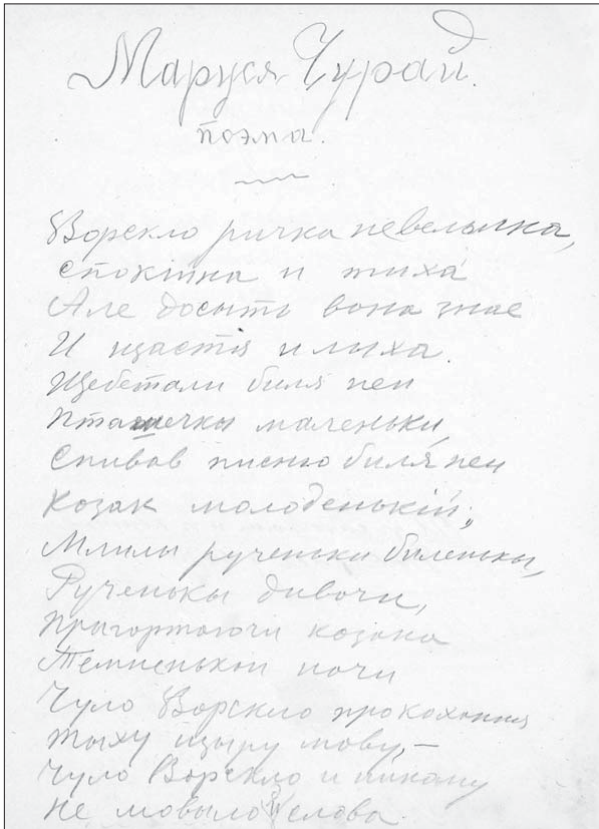 Маруся Чурай.
поэма.
Ворскло ричка невелычка,
Спокійна и тиха
Але досыть вона знае
И щастя и лыха.
Щебетали биля неи
Пташечкы маленьки,
Спивав писню биля неи
Козак молоденькій;
Млилы рученьки биленьки,
Рученькы дивочи,
Пригортаючи козака
Темненькои ночи
Чуло Ворскло про кохання
Тыху щыру мову,—
Чуло Ворскло и никому
Не мовыло слова.